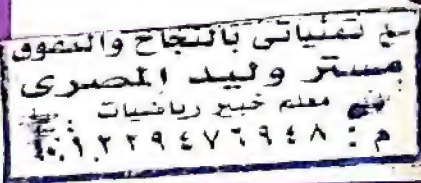 مع تمنياتى بالنجاح والتفوق
مستر وليد المصرى
معلم خبير رياضيات
م : ٠١٠٩٢٢٩٤٧٦٩٤٨